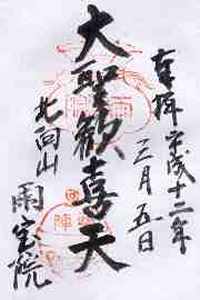 奉拝 平成十二年
三月五日
大聖歓喜天
北向山
雨宝院